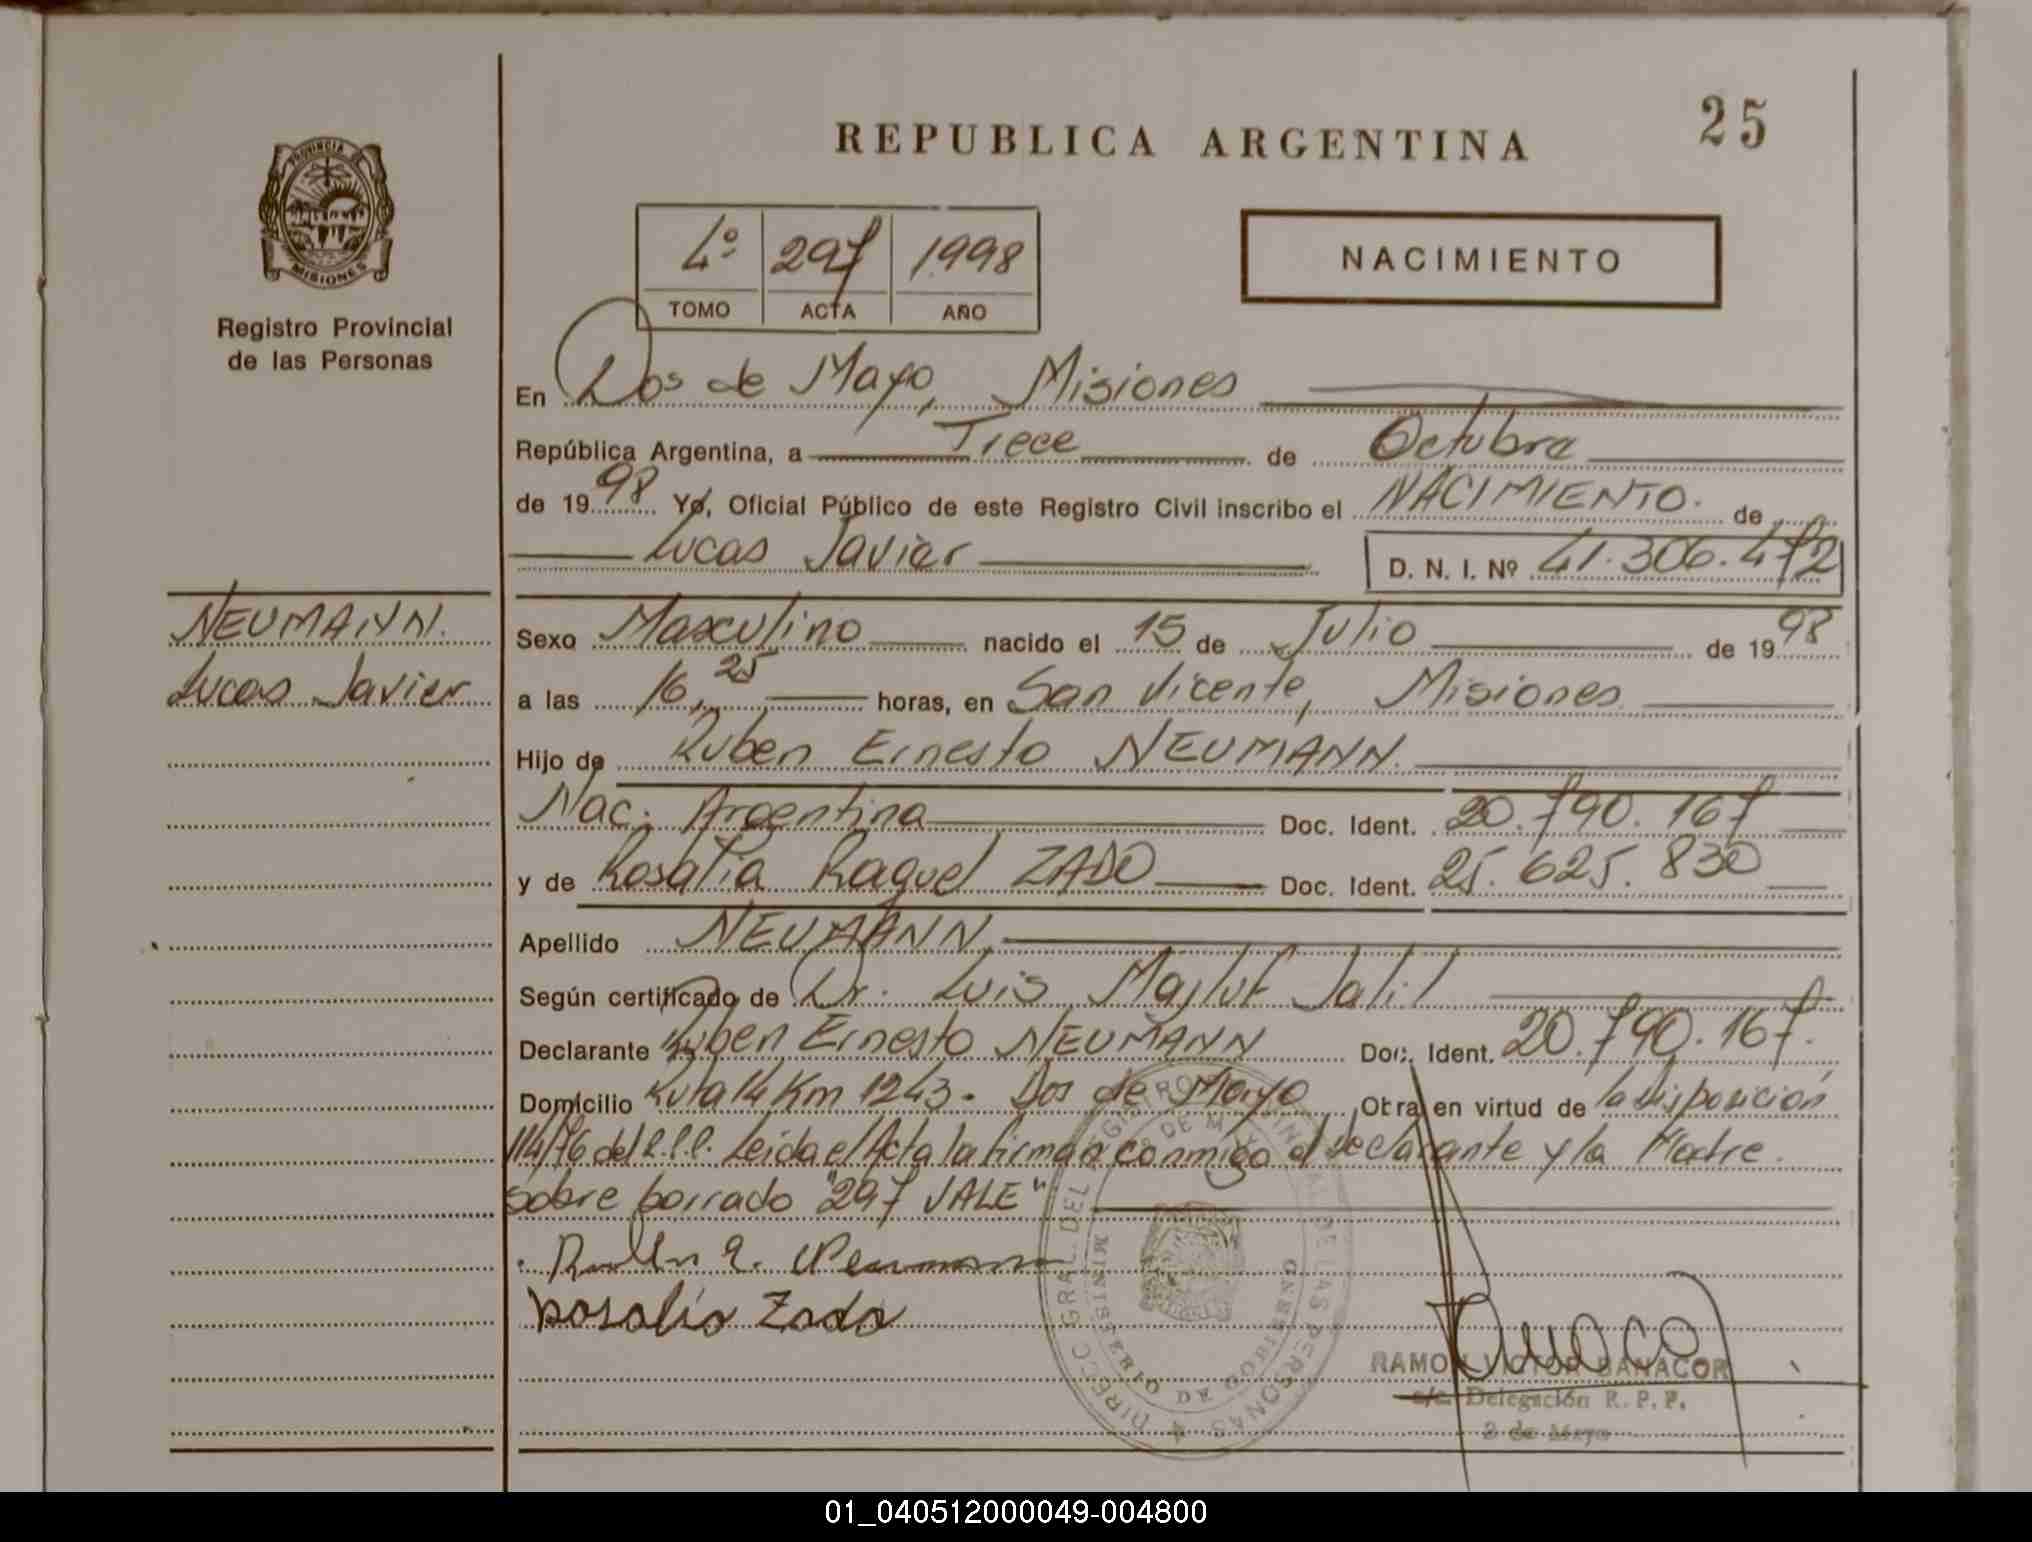 25
REPUBLICA ARGENTINA
PROVINCIA DE
MISIONES
Registro Provincial
de las Personas
4º 297 1998
TOMO ACTA AÑO
NACIMIENTO
En Dos de Mayo, Misiones
República Argentina, a Trece de Octubre
de 1998 Yo, Oficial Público de este Registro Civil inscribo el NACIMIENTO. de
Lucas Javier D. N. I. Nº 41.306.472
NEUMANN.
Lucas Javier
Sexo Masculino nacido el 15 de Julio de 1998
a las 16,25 horas, en San Vicente, Misiones
Hijo de Ruben Ernesto NEUMANN.
Nac. Argentina Doc. Ident. 20.790.167
y de Rosalia Raquel ZADO Doc. Ident. 25.625.830
Apellido NEUMANN
Según certificado de Dr. Luis Jalil
Declarante Ruben Ernesto NEUMANN Doc. Ident. 20.790.167.
Domicilio Ruta 14 Km 1243. Dos de Mayo Obra en virtud de la disposición
114/76 del R.P.P. Leida el Acta la firman conmigo el declarante y la Madre.
sobre borrado "297 VALE"
Rosalia Zado
DIRECC GRAL. DEL REGISTRO PROVINCIAL DE LAS PERSONAS
MINISTERIO DE GOBIERNO
RAMON VICTOR BANACOR
a/c. Delegación R. P. P.
2 de Mayo
01_040512000049-004800